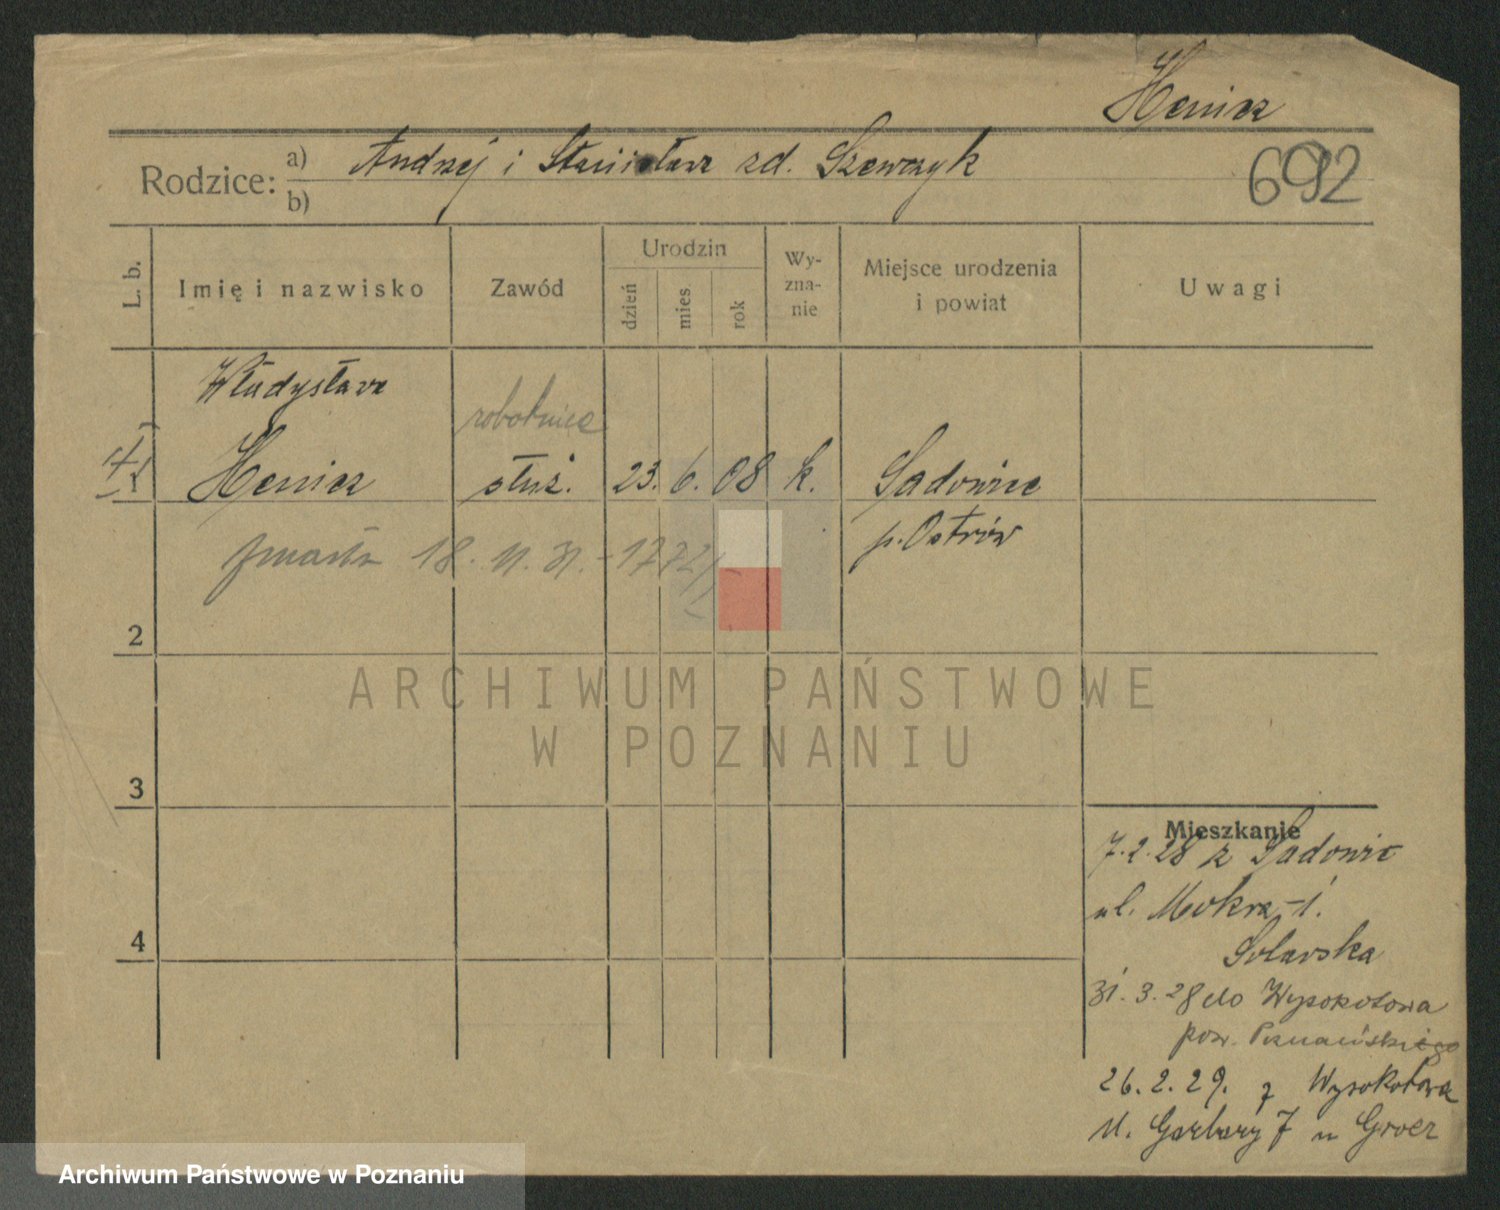 Henicz
Rodzice: a) Andrzej i Stanisława zd. Szewczyk
b)
692
L. b.
Imię i nazwisko
Zawód
Urodzin
dzień
mies
rok
Wy-
zna-
nie
Miejsce urodzenia
i powiat
Uwagi
Władysława
robotnica
1 Henicz służ. 23. 6. 08 k. Sadowie
p. Ostrów
zmarła 18. 11. 31.
2
ARCHIWUM PAŃSTWOWE
W POZNANIU
3
Mieszkanie
7.2.28 z Sadowie
ul. Mokra 1.
Solarska
4
31.3.28 do Wysokotowa
pow. Poznańskiego
26.2.29. z Wysokotowa
ul. Garbary 7 u Grocz
Archiwum Państwowe w Poznaniu